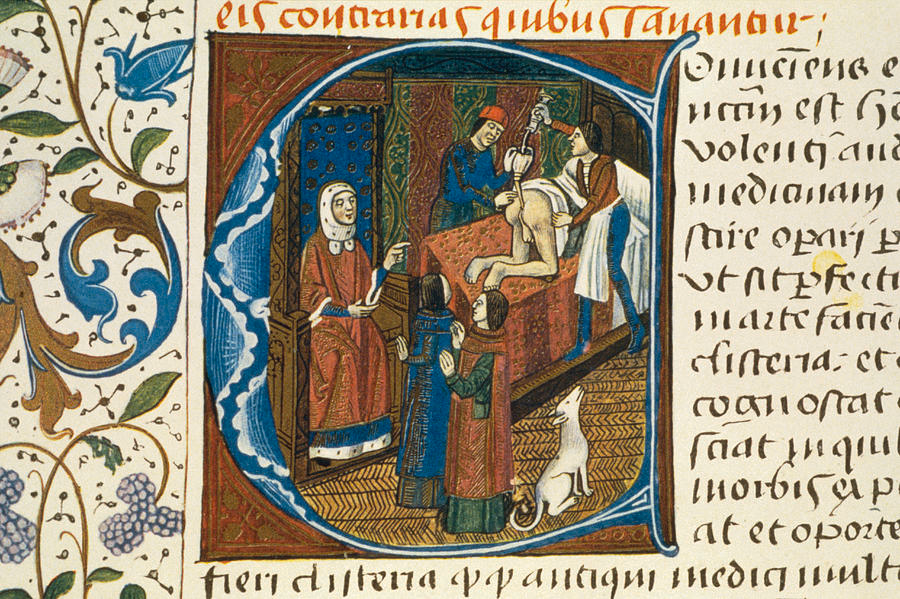 eis contrarias quibus lavantur;
Onuciens e
uctim est
volenti aud
medicinam
scire operari p
ut sit perfecti
in arte facie
clisteria. et
cognoscat
sciat in qui
morbis ex p
at et oporte
fieri clisteria qp antiqui medici mult